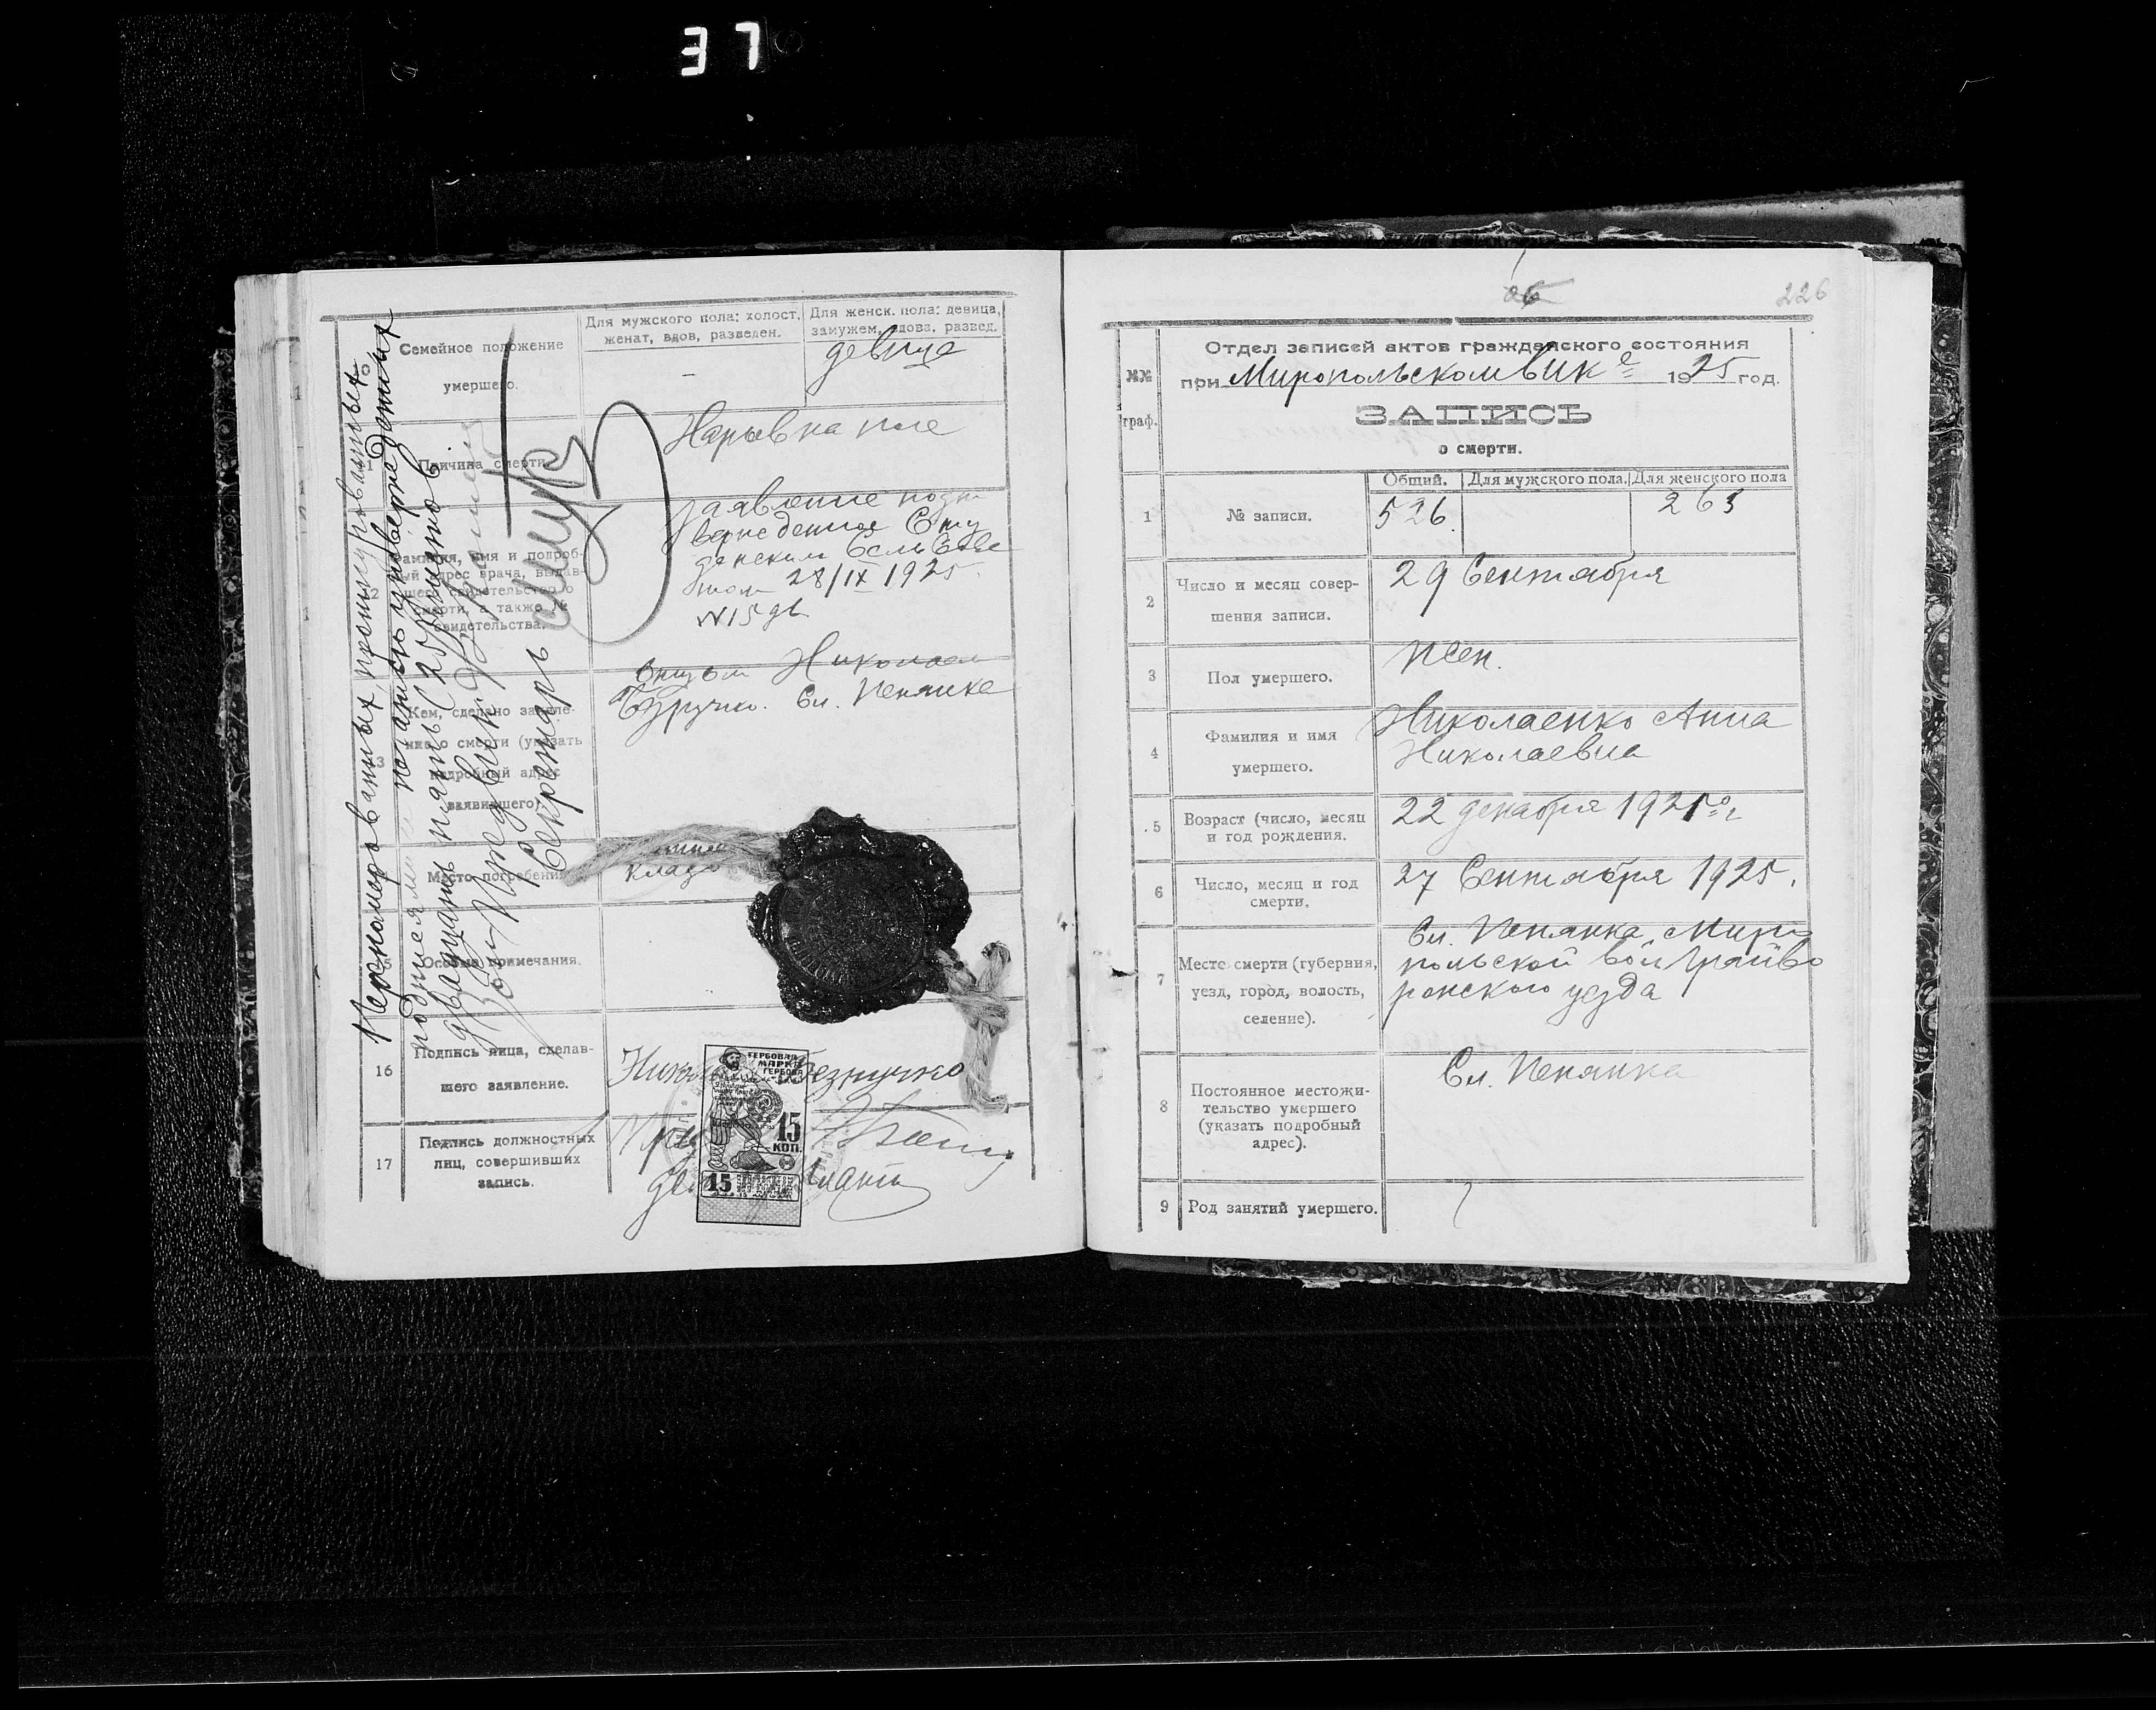 37
Семейное положение
умершего.
Для мужского пола: холост,
женат, вдов, разведен.
Для женск. пола: девица,
замужем, вдова, развед.
—
девица
Причина смерти.
Нарыв на
Фамилия, имя и подроб-
ный адрес врача, выдав-
шего свидетельство о
смерти, а также №
свидетельства.
заявление подт
вержденное Сту
денским Сельсове
том 28/IX 1925
N 15
Кем, сделано заявле-
ние о смерти (указать
подробный адрес
заявившего).
отцом Николаем
Сл. Пенянке
Место погребения
кладб
15
Особые примечания.
16
Подпись лица, сделав-
шего заявление.
Ник Безручко
17
Подпись должностных
лиц, совершивших
запись.
ГЕРБОВАЯ
МАРКА
15
КОП.
15
Пронумерованных, прошнурованных
подписями и печатью утвержденных
двадцать пять (25) штуков
Пред Вик
Секретарь
226
№№
граф.
Отдел записей актов гражданского состояния
при Миропольском Вик е 1925 год.
ЗАПИСЬ
о смерти.
Общий. Для мужского пола. Для женского пола
1
№ записи.
526. 263
2
Число и месяц совер-
шения записи.
29 Сентября
3
Пол умершего.
Жен.
4
Фамилия и имя
умершего.
Николаенко Анна
Николаевна
5
Возраст (число, месяц
и год рождения.
22 декабря 1921 г
6
Число, месяц и год
смерти.
27 Сентября 1925.
7
Место смерти (губерния,
уезд, город, волость,
селение).
Сл. Пенянка, Миро
польской вол Грайво
ронского уезда
8
Постоянное местожи-
тельство умершего
(указать подробный
адрес).
Сл. Пенянка
9
Род занятий умершего.